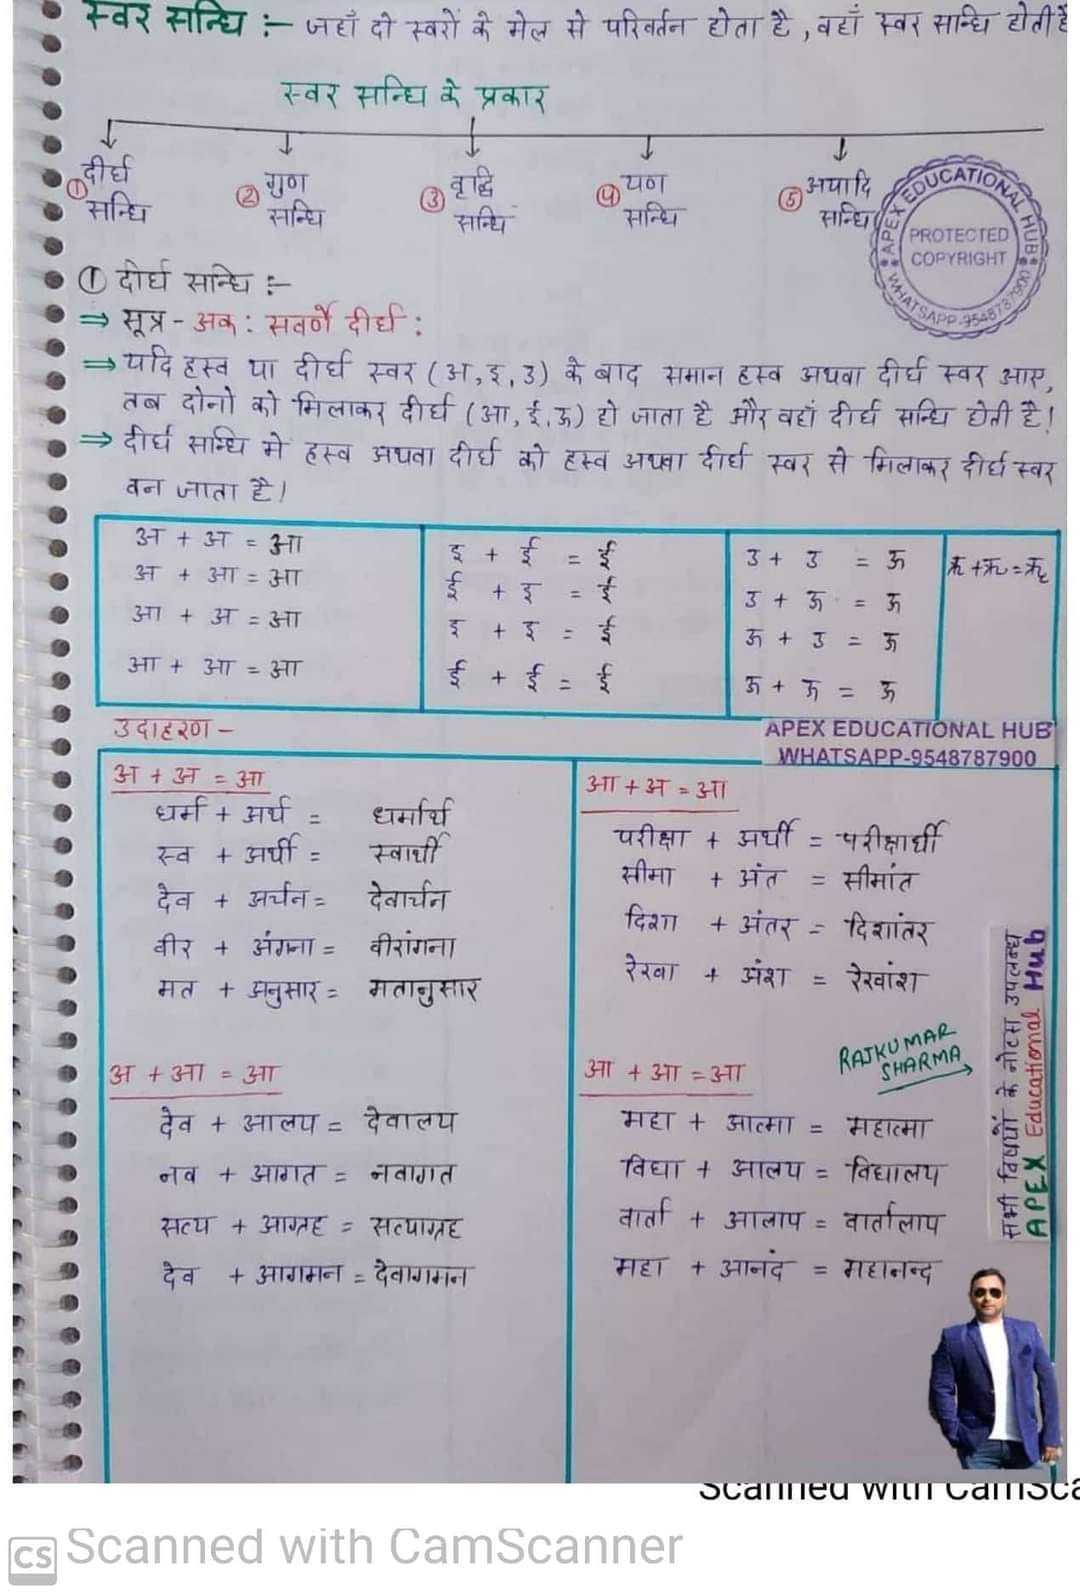 स्वर सन्धि :- जहाँ दो स्वरों के मेल से परिवर्तन होता है, वहाँ स्वर सन्धि होती है
स्वर सन्धि के प्रकार
① दीर्घ सन्धि
② गुण सन्धि
③ वृद्धि सन्धि
④ यण सन्धि
⑤ अयादि सन्धि
APEX EDUCATIONAL HUB
PROTECTED
COPYRIGHT
WHATSAPP-9548787900
① दीर्घ सन्धि :-
⇒ सूत्र - अक: सवर्णे दीर्घ :
⇒ यदि हस्व या दीर्घ स्वर (अ, इ, उ) के बाद समान हस्व अथवा दीर्घ स्वर आए,
तब दोनो को मिलाकर दीर्घ (आ, ई, ऊ) हो जाता है और वहाँ दीर्घ सन्धि होती है!
⇒ दीर्घ सन्धि मे हस्व अथवा दीर्घ को हस्व अथवा दीर्घ स्वर से मिलाकर दीर्घ स्वर
बन जाता है।
अ + अ = आ
अ + आ = आ
आ + अ = आ
आ + आ = आ
इ + ई = ई
ई + इ = ई
इ + इ = ई
ई + ई = ई
उ + उ = ऊ
उ + ऊ = ऊ
ऊ + उ = ऊ
ऊ + ऊ = ऊ
ऋ + ऋ = ॠ
उदाहरण -
APEX EDUCATIONAL HUB
WHATSAPP-9548787900
अ + अ = आ
धर्म + अर्थ = धर्मार्थ
स्व + अर्थी = स्वार्थी
देव + अर्चन = देवार्चन
वीर + अंगना = वीरांगना
मत + अनुसार = मतानुसार
आ + अ = आ
परीक्षा + अर्थी = परीक्षार्थी
सीमा + अंत = सीमांत
दिशा + अंतर = दिशांतर
रेखा + अंश = रेखांश
अ + आ = आ
देव + आलय = देवालय
नव + आगत = नवागत
सत्य + आग्रह = सत्याग्रह
देव + आगमन = देवागमन
RAJKUMAR
SHARMA
आ + आ = आ
महा + आत्मा = महात्मा
विद्या + आलय = विद्यालय
वार्ता + आलाप = वार्तालाप
महा + आनंद = महानन्द
सभी विषयों के नोटस उपलब्ध
APEX Educational Hub
Scanned with CamSca
CS Scanned with CamScanner